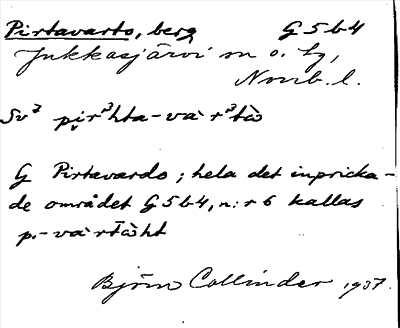 Pirtavarto, berg G5b4
Jukkasjärvi sn o. tg,
Norrb. l.
Sv² pi̯r²hta-và r²tɷ̀
G Pirtavardo; hela det inpricka-
de området G5b4, n:r 6 kallas
p.-và rt̄ɷ̀ht
Björn Collinder 1937.